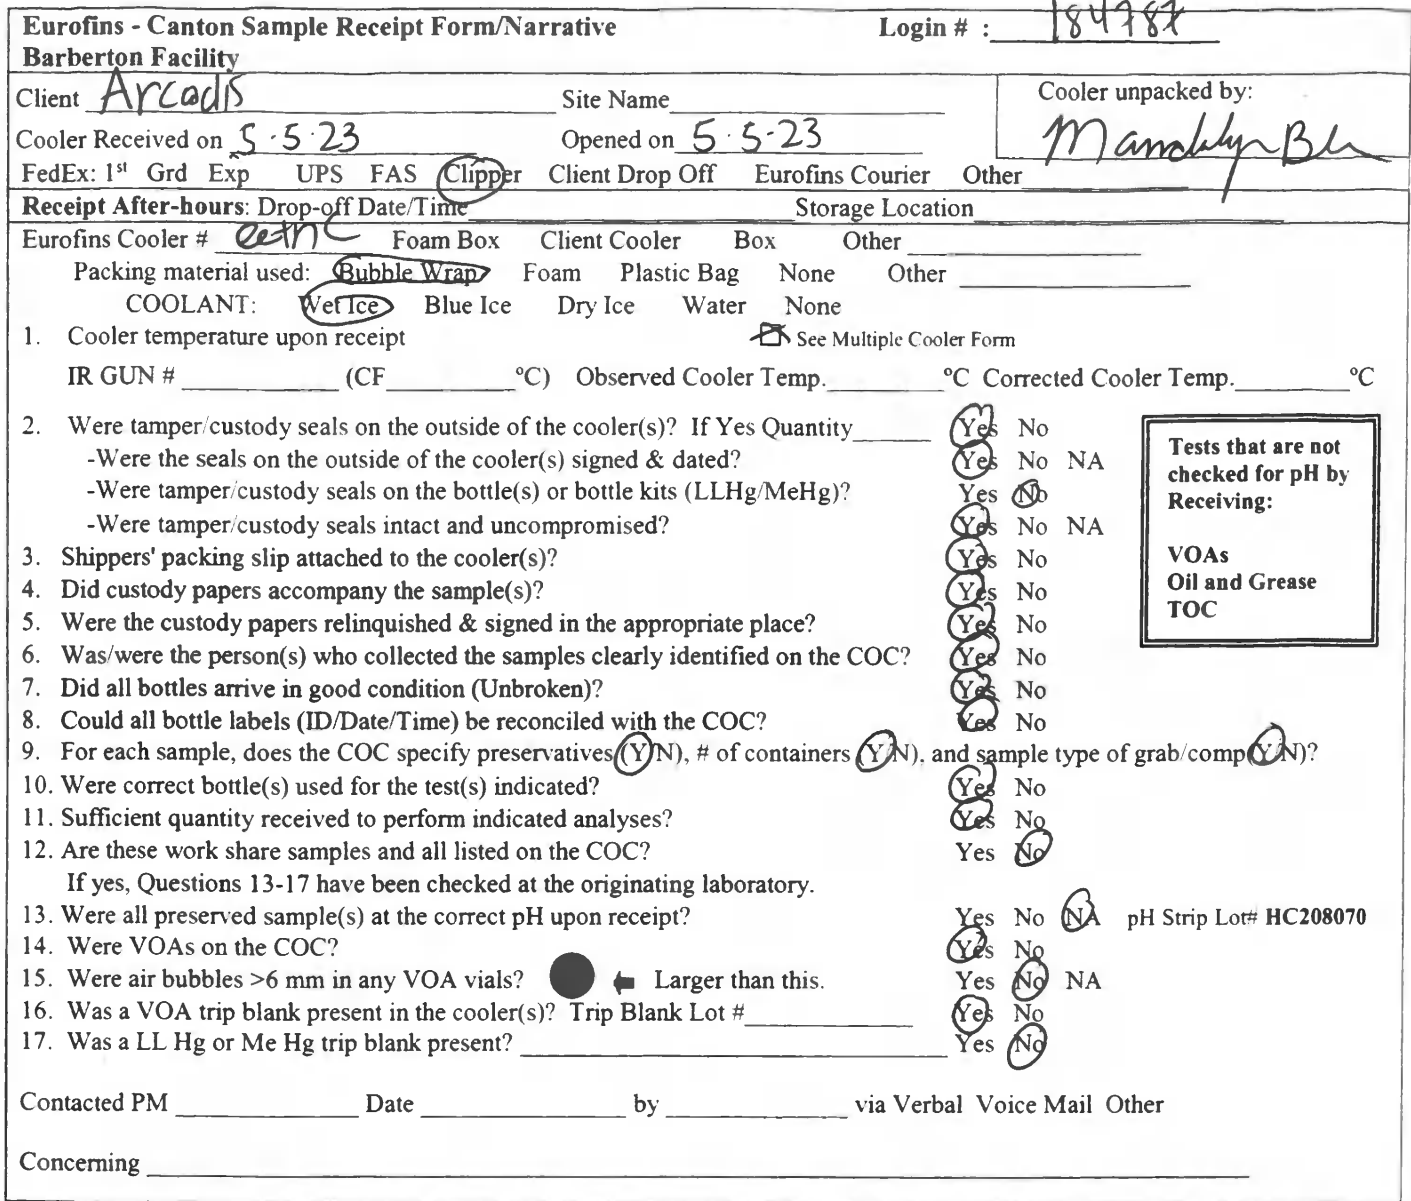 Eurofins - Canton Sample Receipt Form/Narrative Login # : 184787
Barberton Facility
Client Arcadis Site Name Cooler unpacked by:
Cooler Received on 5.5.23 Opened on 5.5-23
FedEx: 1st Grd Exp UPS FAS Clipper Client Drop Off Eurofins Courier Other
Receipt After-hours: Drop-off Date/Time Storage Location
Eurofins Cooler # Foam Box Client Cooler Box Other
Packing material used: Bubble Wrap Foam Plastic Bag None Other
COOLANT: Wet Ice Blue Ice Dry Ice Water None
1. Cooler temperature upon receipt See Multiple Cooler Form
IR GUN # (CF °C) Observed Cooler Temp. °C Corrected Cooler Temp. °C
2. Were tamper/custody seals on the outside of the cooler(s)? If Yes Quantity Yes No
-Were the seals on the outside of the cooler(s) signed & dated? Yes No NA
-Were tamper/custody seals on the bottle(s) or bottle kits (LLHg/MeHg)? Yes No
-Were tamper/custody seals intact and uncompromised? Yes No NA
3. Shippers' packing slip attached to the cooler(s)? Yes No
4. Did custody papers accompany the sample(s)? Yes No
5. Were the custody papers relinquished & signed in the appropriate place? Yes No
6. Was/were the person(s) who collected the samples clearly identified on the COC? Yes No
7. Did all bottles arrive in good condition (Unbroken)? Yes No
8. Could all bottle labels (ID/Date/Time) be reconciled with the COC? Yes No
9. For each sample, does the COC specify preservatives (Y/N), # of containers (Y/N), and sample type of grab/comp(Y/N)?
10. Were correct bottle(s) used for the test(s) indicated? Yes No
11. Sufficient quantity received to perform indicated analyses? Yes No
12. Are these work share samples and all listed on the COC? Yes No
If yes, Questions 13-17 have been checked at the originating laboratory.
13. Were all preserved sample(s) at the correct pH upon receipt? Yes No NA pH Strip Lot# HC208070
14. Were VOAs on the COC? Yes No
15. Were air bubbles >6 mm in any VOA vials? Larger than this. Yes No NA
16. Was a VOA trip blank present in the cooler(s)? Trip Blank Lot # Yes No
17. Was a LL Hg or Me Hg trip blank present? Yes No
Tests that are not
checked for pH by
Receiving:
VOAs
Oil and Grease
TOC
Contacted PM Date by via Verbal Voice Mail Other
Concerning